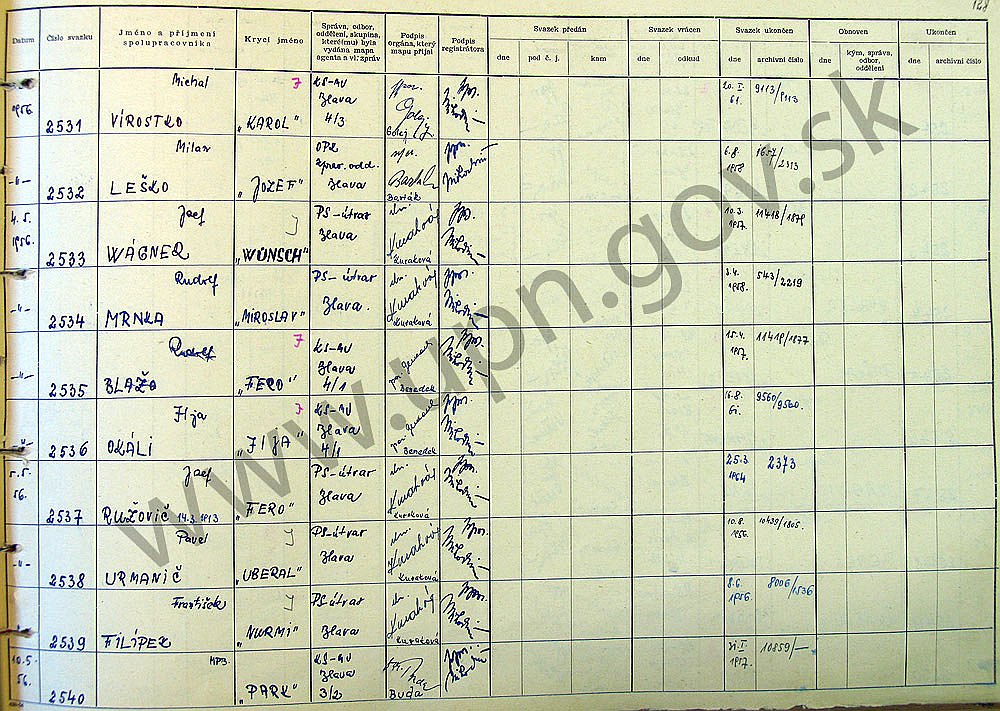 128
Datum
Číslo svazku
Jméno a příjmení
spolupracovníka
Krycí jméno
Správa, odbor,
oddělení, skupina,
které(mu) byla
vydána mapa
agenta a vl. zpráv
Podpis
orgána, který
mapu přijal
Podpis
registrátora
Svazek předán
dne
pod č. j.
kam
Svazek vrácen
dne
odkud
Svazek ukončen
dne
archivní číslo
Obnoven
dne
kým, správa,
odbor,
oddělení
Ukončen
dne
archivní číslo
1956.
2531
Michal
VÍROSTKO
„KAROL"
KS-MV
Ilava
4/3
Golej
20. I.
61.
9113/9113
-"-
2532
Milan
LEŠKO
„JOZEF"
zprav. odd.
Ilava
Barták
6.8.
1958
1657/2313
4.5.
1956.
2533
Jozef
WÁGNER
„WÜNSCH"
PS-útvar
Ilava
Kuraková
10.3.
1957.
11418/1879
-"-
2534
Rudolf
MRNKA
„MIROSLAV"
PS-útvar
Ilava.
Kuraková
3.4.
1958.
543/2219
-"-
2535
Rudolf
BLAŽO
„FERO"
KS-MV
Ilava
4/1
Benedek
15.4.
1957.
11419/1877
-"-
2536
Ilja
OKÁLI
„ILJA"
KS-MV
Ilava
4/1
Benedek
16.8.
61.
9560/9560.
5.5.
56.
2537
Jozef
RUŽOVIČ 14.3.1913
„FERO"
PS-útvar
Ilava
Kuraková
25.3.
1964
2373
-"-
2538
Pavel
URMANIČ
„UBERAL"
PS-útvar
Ilava
Kuraková
10.8.
1956.
10439/1805.
-"-
2539
František
FILÍPEK
„NURMI"
PS-útvar
Ilava
Kuraková
8.6.
1956.
8006/1536
10.5.
56.
2540
MPB.
„PARK"
KS-MV
Ilava
3/2
Buda
1957.
10859/-
www.upn.gov.sk